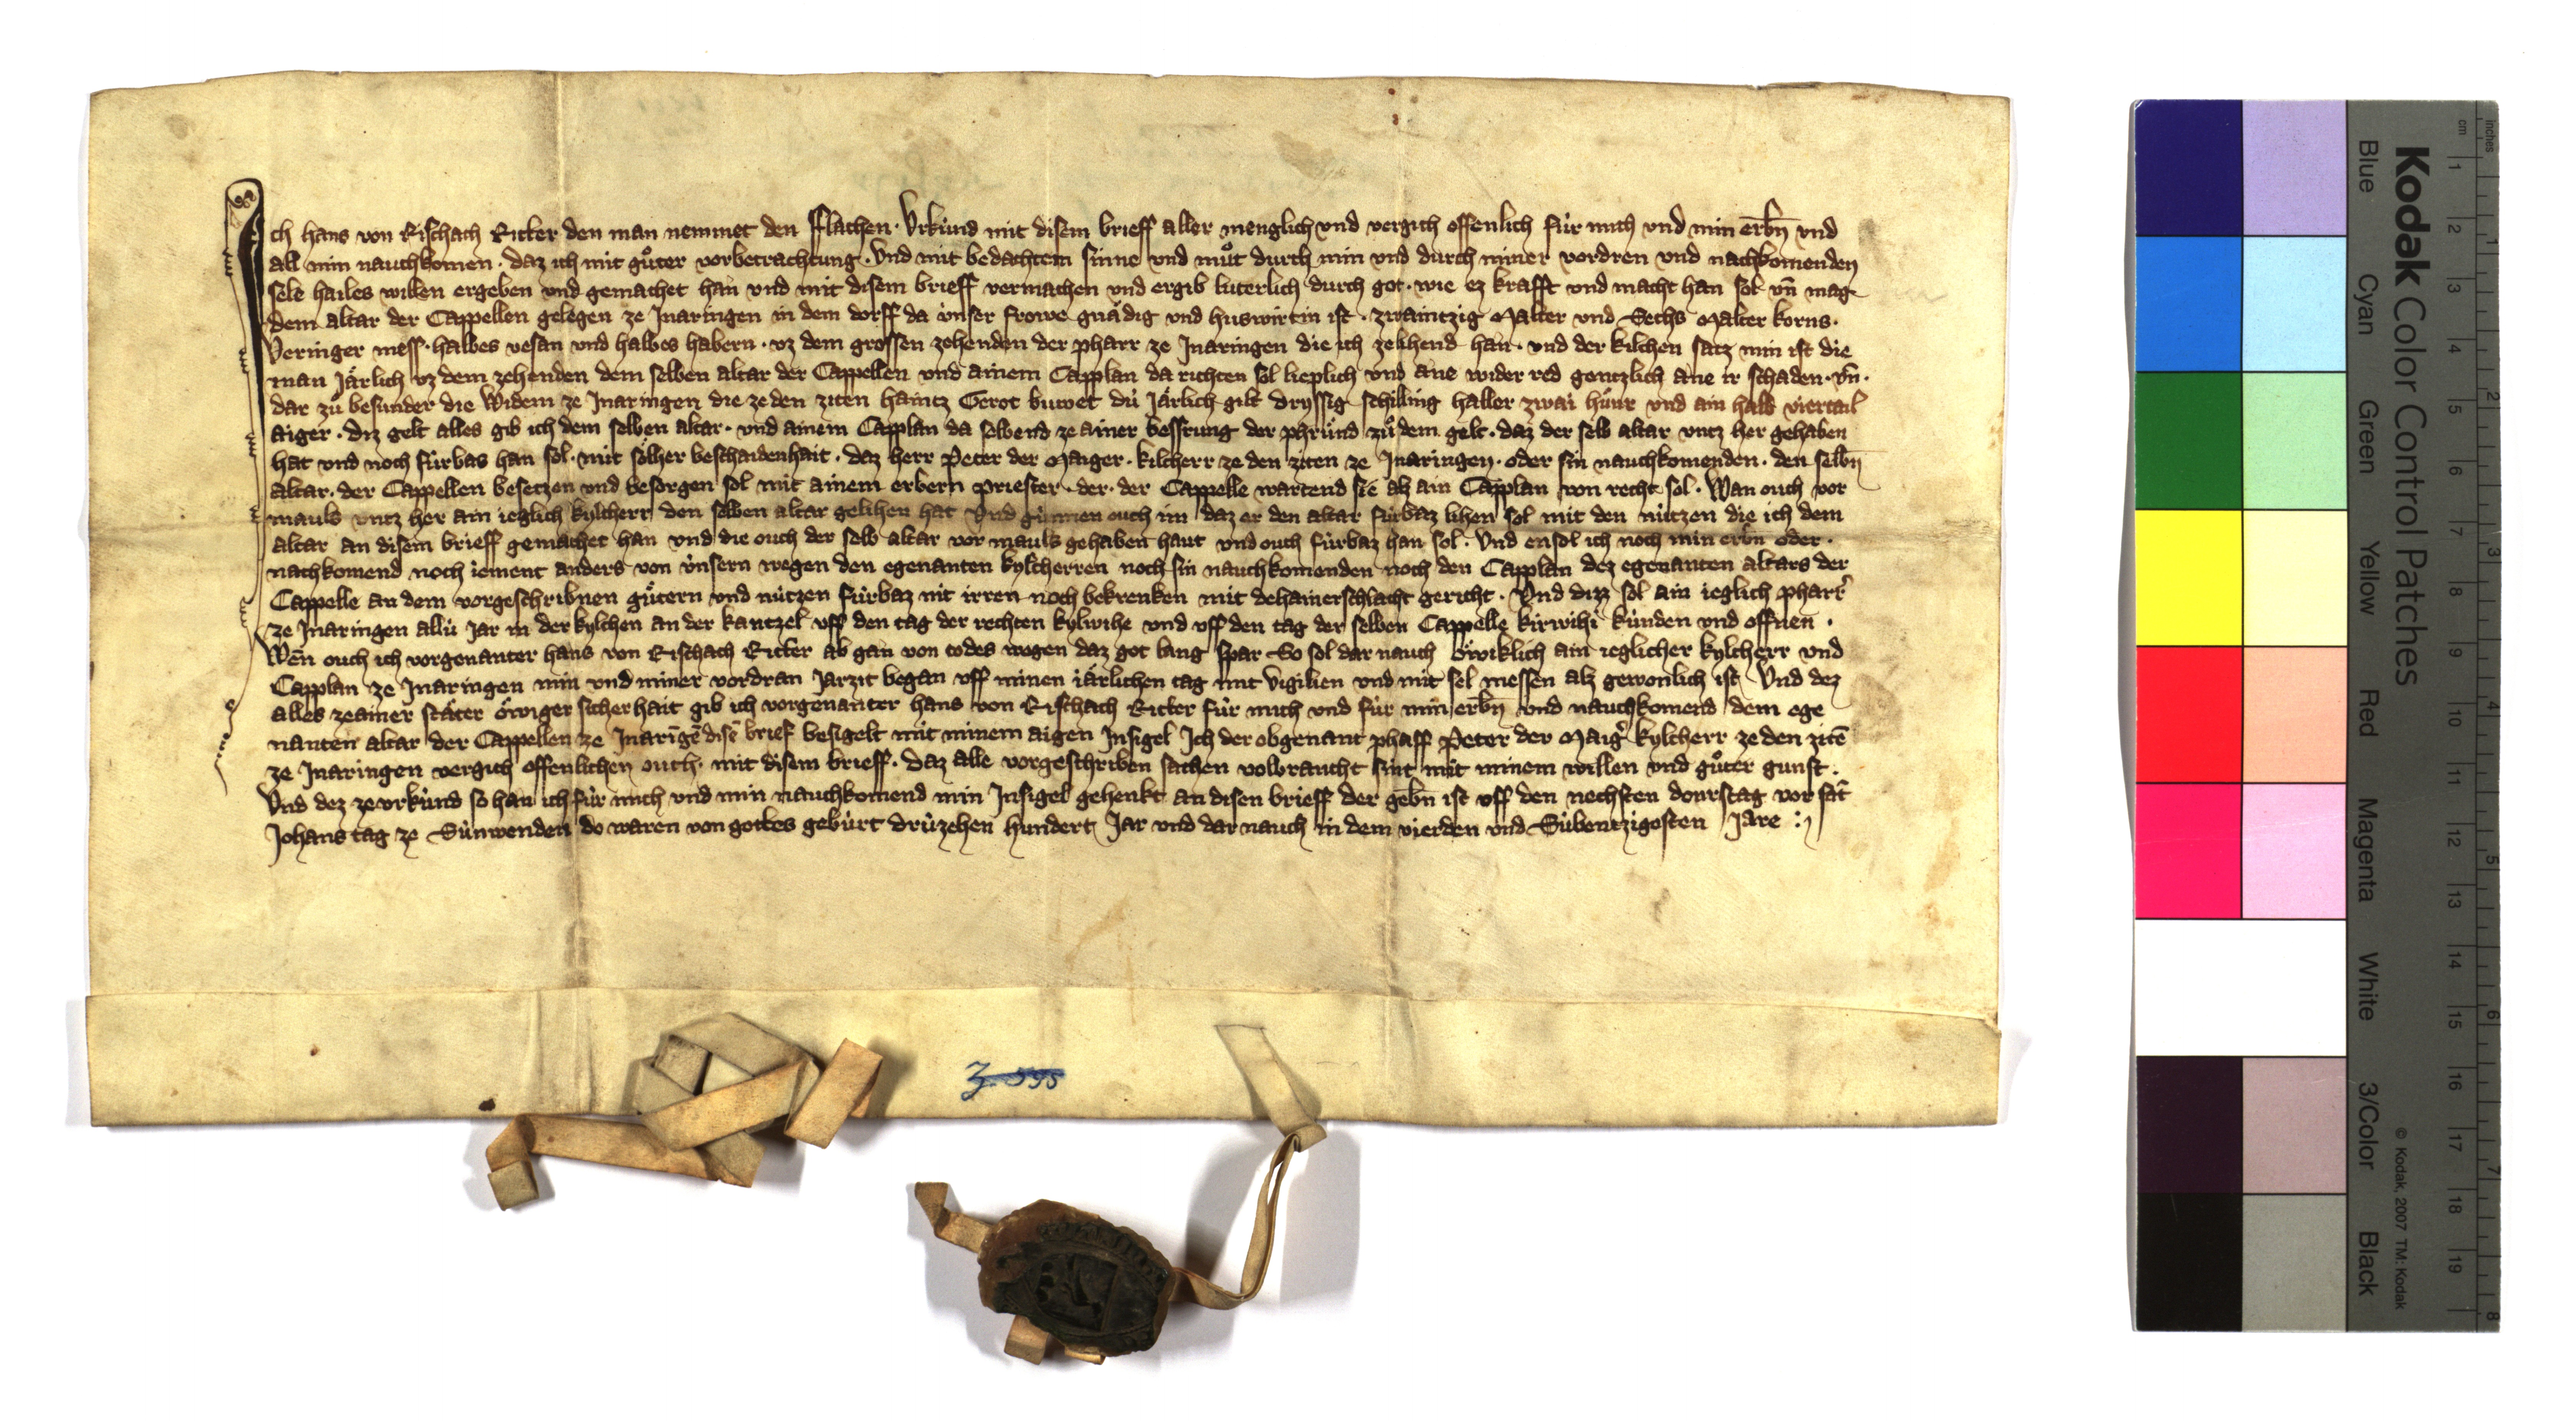 Ich hans von Rischach Ritter den man nemmet den fflachen. Vrkúnd mit disem brieff aller menglich vnd vergich offenlich fúr mich vnd min erbn̄ vnd
all min nauchkomen. daz ich mit gůter vorbetrachtung. Vnd mit bedachtem sinne vnd můt durch min vnd durch miner vordren vnd nachkomenden
sele hailes willen ergeben vnd gemachet han vnd mit disem brieff vermachen vnd ergib luterlich durch got. wie ez krafft vnd macht han sol vn̄ mag
dem altar der Cappellen gelegen ze Jnaringen in dem dorff da v́nser frowe gnädig vnd huswirtin ist. zwaintzig Malter vnd Sechs Malter korns.
Veringer mess. halbes vesan vnd halbes habern. vz dem grossen zehenden der pharr ze Jnaringen die ich ze lihend han. vnd der kilchen satz min ist die
man Järlich vz dem zehenden dem selben altar der Cappellen vnd ainem Capplan da richten sol lieplich vnd ane wider red gentzlich ane ir schaden. vn̄.
dar zů besunder die Widem ze Jnaringen die ze den ziten haintz Gerot buwet dú Järlich gilt dryssig schilling haller zwai hu̇nr vnd ain halb viertail
aiger. diz gelt alles gib ich dem selben altar. vnd ainem Capplan da selbend ze ainer bessrung der phrůnd zů dem gelt. daz der selb altar vntz her gehaben
hat vnd noch fúrbas han sol. mit sölher beschaidenhait. daz herr Peter der Maiger. kilcherr ze den ziten ze Jnaringen. oder sin nauchkomenden. den selbn̄
altar. der Cappellen besetzen vnd besorgen sol mit ainem erbern priester. der. der Cappelle wartend sie alz ain Capplan von recht sol. Wan ouch vor
mauls vntz her ain ieglich kylcherr den selben altar gelihen hat Vnd gúnnen ouch im daz er den altar fúrbaz lihen sol mit den nútzen die ich dem
altar an disem brieff gemachet han vnd die ouch der selb altar vor mauls gehaben haut vnd ouch fúrbaz han sol. Vnd ensol ich noch min erbn oder.
nachkomend noch iement anders von v́nsern wegen den egenanten kylcherren noch sin nauchkomenden noch den Capplan dez egenanten altars der
Cappelle an dem vorgeschribnen gůtern vnd nútzen fúrbaz nit irren noch bekrenken mit dehainerschlacht gericht. Vnd dizz sol ain ieglich pharr̄
ze Jnaringen allú Jar in der kylchen an der kantzel vff den tag der rechten kylwihe vnd vff den tag der selben Cappelle kirwihi kúnden vnd offnen.
Wen̄ ouch ich vorgenanter hans von Rischach Ritter ab gan von todes wegen daz got lang spar So sol dar nauch ȯ̇wiklich ain ieglicher kylcherr vnd
Capplan ze Jnaringen min vnd miner vordran Jarzit began vff minen iärlichen tag mit vigilien vnd mit sel messen alz gewonlich ist Vnd dez
alles ze ainer stäter öwiger sicherhait gib ich vorgenanter hans von Rischach Ritter fúr mich vnd fúr min erbn̄ vnd nauchkomend dem ege
nanten altar der Cappellen ze Jnaringē disē brief besigelt mit minem aigen Jnsigel Jch der obgenant phaff Peter der Maig̉ kylcherr ze den zitē
ze Jnaringen vergich offenlichen ouch. mit disem brieff. daz alle vorgeschriben sachen volbraucht sint mit minem willen vnd gůter gunst.
Vnd dez ze vrkúnd so han ich fúr mich vnd min nauchkomend min Jnsigel gehenkt an disen brieff der gebn̄ ist vff den nechsten donrstag vor sāt
Johans tag ze Súnwenden do waren von gottes gebúrt drúzehen hundert Jar vnd dar nauch in dem vierden vnd Súbentzigosten Jare :
Z. 595
Kodak Color Control Patches
Blue Cyan Green Yellow Red Magenta White 3/Color Black
© Kodak, 2007 TM: Kodak
cm 1 2 3 4 5 6 7 8 9 10 11 12 13 14 15 16 17 18 19
inches 1 2 3 4 5 6 7 8